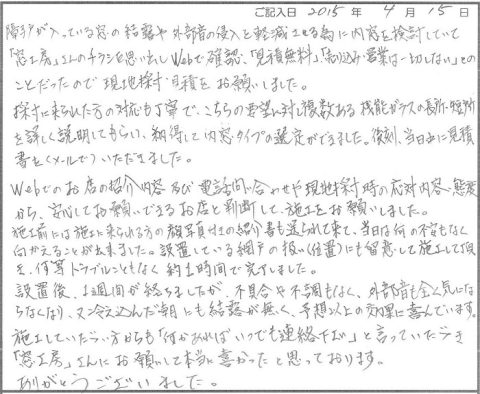 ご記入日 2015年 4月 15日
障子が入っている窓の結露や外部音の侵入を軽減させる為に内窓を検討していて
「窓工房」さんのチラシを思い出しWebで確認、「見積無料」「売り込み営業は一切しない」との
ことだったので現地採寸・見積をお願いしました。
採寸に来られた方の対応も丁寧で、こちらの要望に対し複数ある機能ガラスの長所・短所
を詳しく説明してもらい、納得して内窓タイプの選定ができました。後刻、当日に見積
書を(メールで)いただきました。
Webでのお店の紹介内容及び電話問い合わせや現地採寸時の応対内容・態度
から、安心してお願いできるお店と判断して、施工をお願いしました。
施工前には施工に来られる方の顔写真付の紹介書も送られて来て、当日は何の不安もなく
向かえることが出来ました。設置している網戸の扱い(位置)にも留意して施工して頂
き、何等トラブルこともなく約1時間で完了しました。
設置後、1週間が経ちましたが、不具合や不調もなく、外部音も全く気にな
らなくなり、又冷え込んだ朝にも結露が無く、予想以上の効果に喜んでいます。
施工していただいた方からも「何かあればいつでも連絡下さい」と言っていただき
「窓工房」さんにお願いして本当に喜かったと思っております。
ありがとうございました。